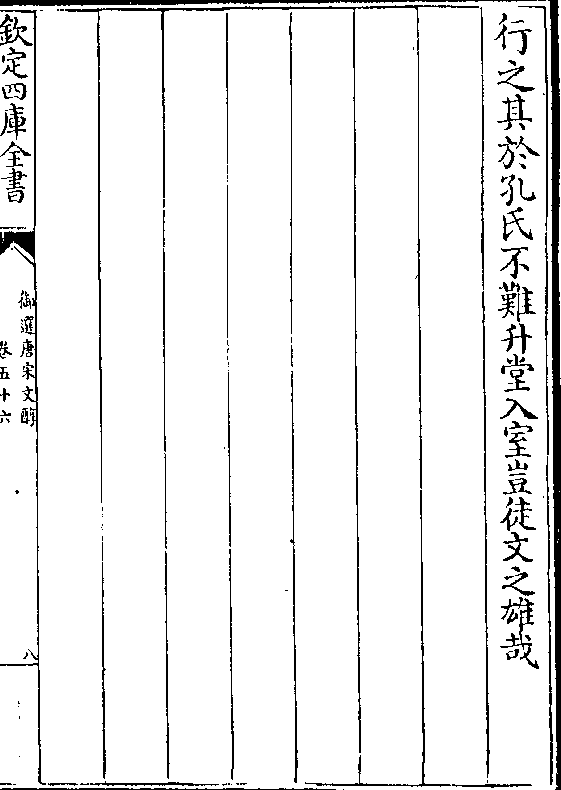 行之其於孔氏不難升堂入室豈徒文之雄哉
欽定四庫全書
御選唐宋文醇
卷五十六
八